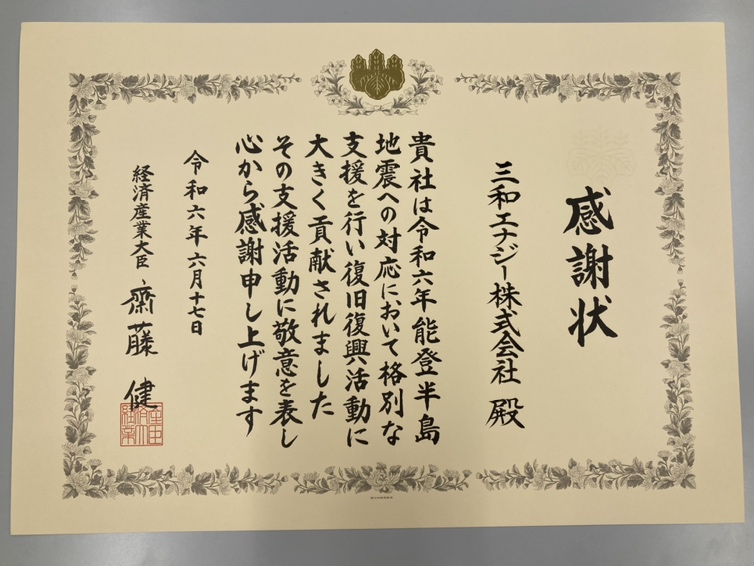 感謝状
三和エナジー株式会社 殿
貴社は令和六年能登半島
地震への対応において格別な
支援を行い復旧復興活動に
大きく貢献されました
その支援活動に敬意を表し
心から感謝申し上げます
令和六年六月十七日
経済産業大臣 齋藤 健